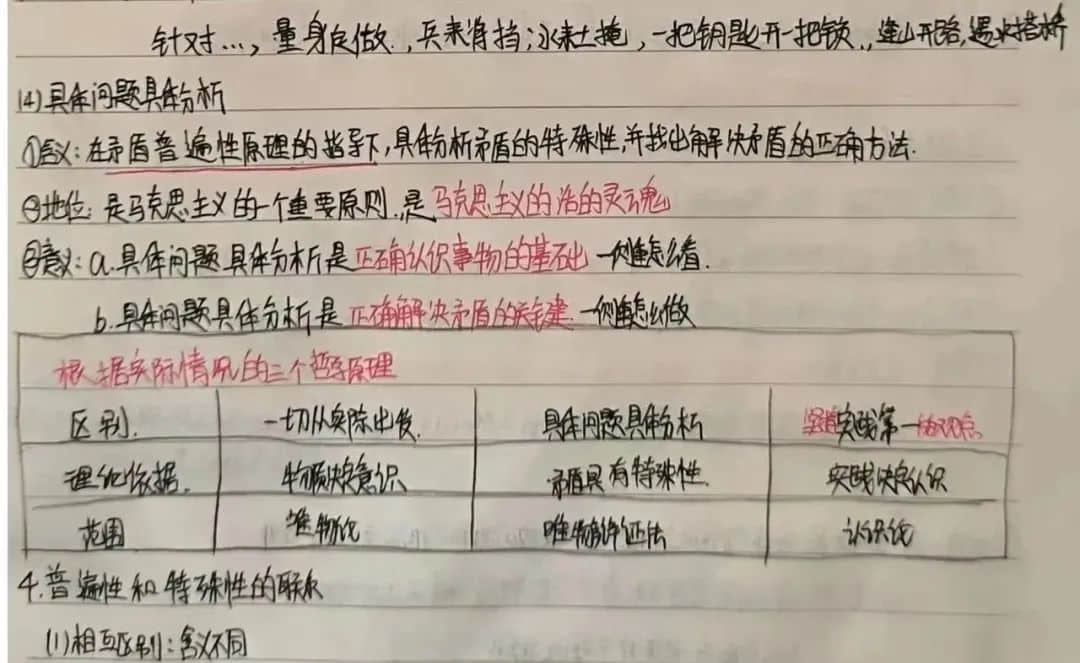 针对…，量身定做，兵来将挡；水来土掩，一把钥匙开一把锁，逢山开路，遇水搭桥
(4)具体问题具体分析
①含义：在矛盾普遍性原理的指导下，具体分析矛盾的特殊性，并找出解决矛盾的正确方法.
②地位：是马克思主义的一个重要原则，是马克思主义的活的灵魂
③意义：a.具体问题具体分析是正确认识事物的基础—侧重怎么看.
b.具体问题具体分析是正确解决矛盾的关键—侧重怎么做
根据实际情况的三个哲学原理
区别. 一切从实际出发. 具体问题具体分析 坚持实践第一的观点
理论依据. 物质决定意识 矛盾具有特殊性. 实践决定认识
范围 唯物论 唯物辩证法 认识论
4.普遍性和特殊性的联系
(1)相互区别：含义不同